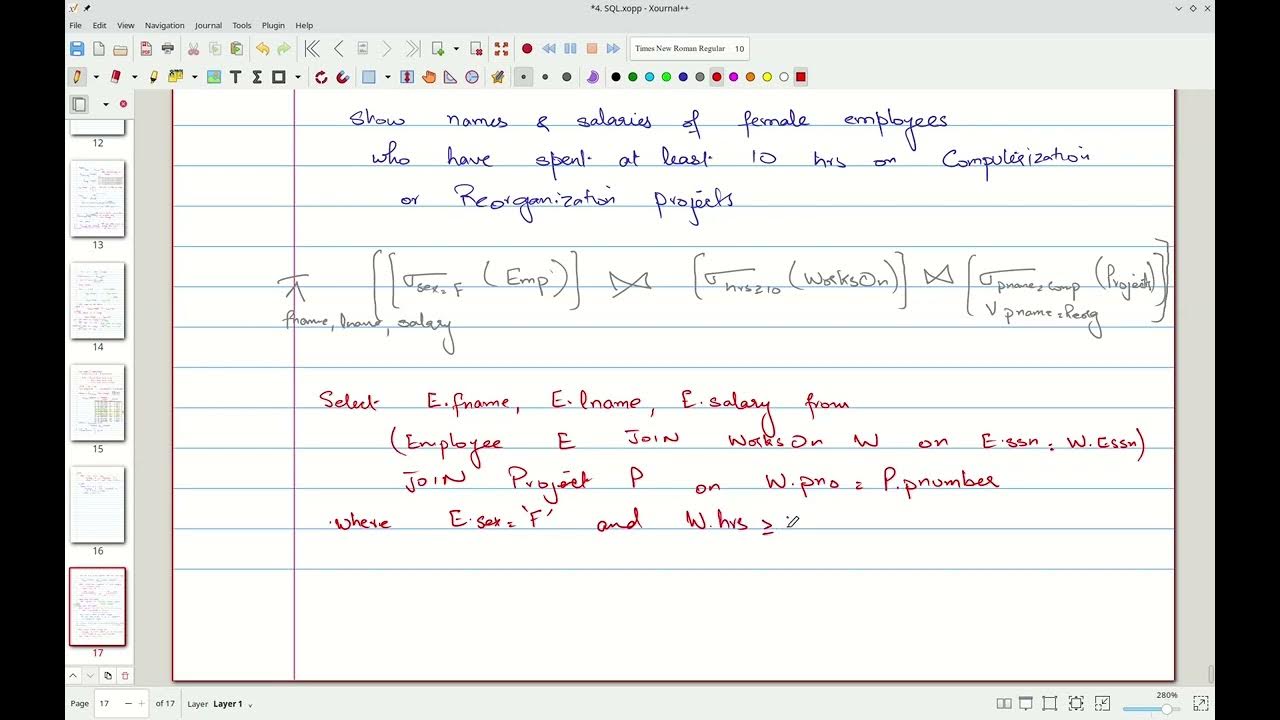 *4. SQL.xopp - Xournal++
File Edit View Navigation Journal Tools Plugin Help
Times New Roman Regular 10
Show names & salaries of female employees
who have spent at least 10 hrs on Computerization
or Reorganization projects
π fname, lname, salary [[σ sex=F (Emp)] ⋈ [σ hrs≥10 (WorksOn)] ⋈ (σ pname=Comp ∨ pname=Reorg (Project)]
Select E.fname E.lname, E.salary from
(Employee E JOIN WorksOn W on E.ssn = W.Essn)
JOIN Project P on W.pno = P.pnumber
where E.sex = 'F' and W.hrs ≥
12
13
14
15
16
17
Page 17 of 17 Layer Layer 1
280%